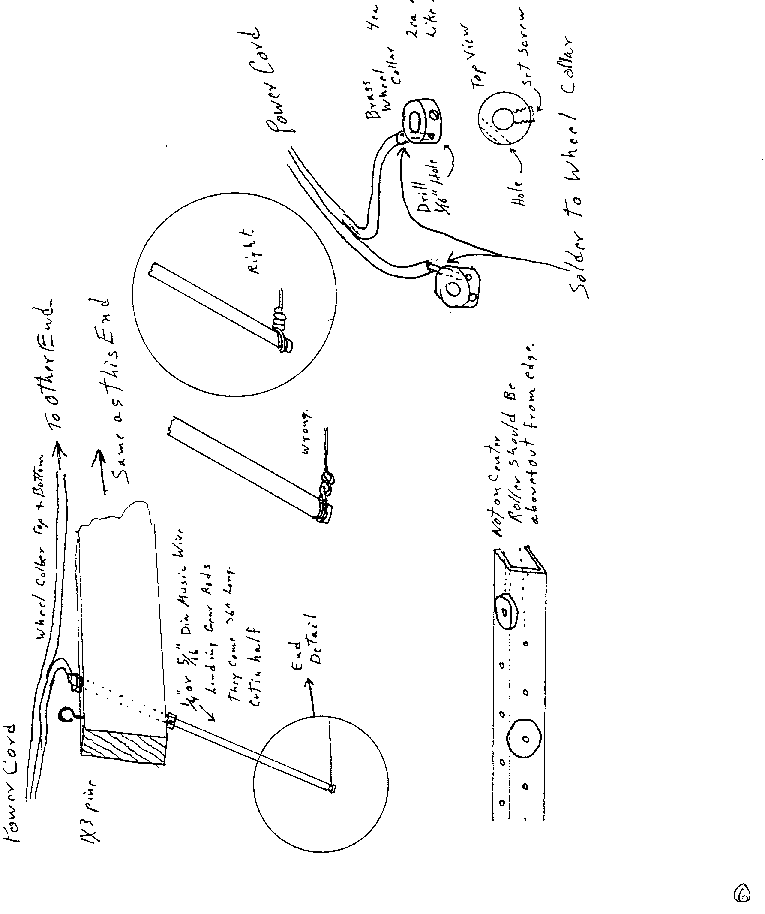 Power Cord
Wheel Collar Top & Bottom
To Other End
Same as This End
1X3 pine
1/4" or 5/16" Dia Music Wire
Landing Gear Rods
They come 36" long.
Cut in half
End
Detail
Right
Wrong.
Power Cord
Brass
Wheel
Collar
4ea
2ea
Like
Drill
1/16" Hole
Top View
Set Screw
Hole
Solder To Wheel Collar
Not on Center
Roller should Be
about out from edge.